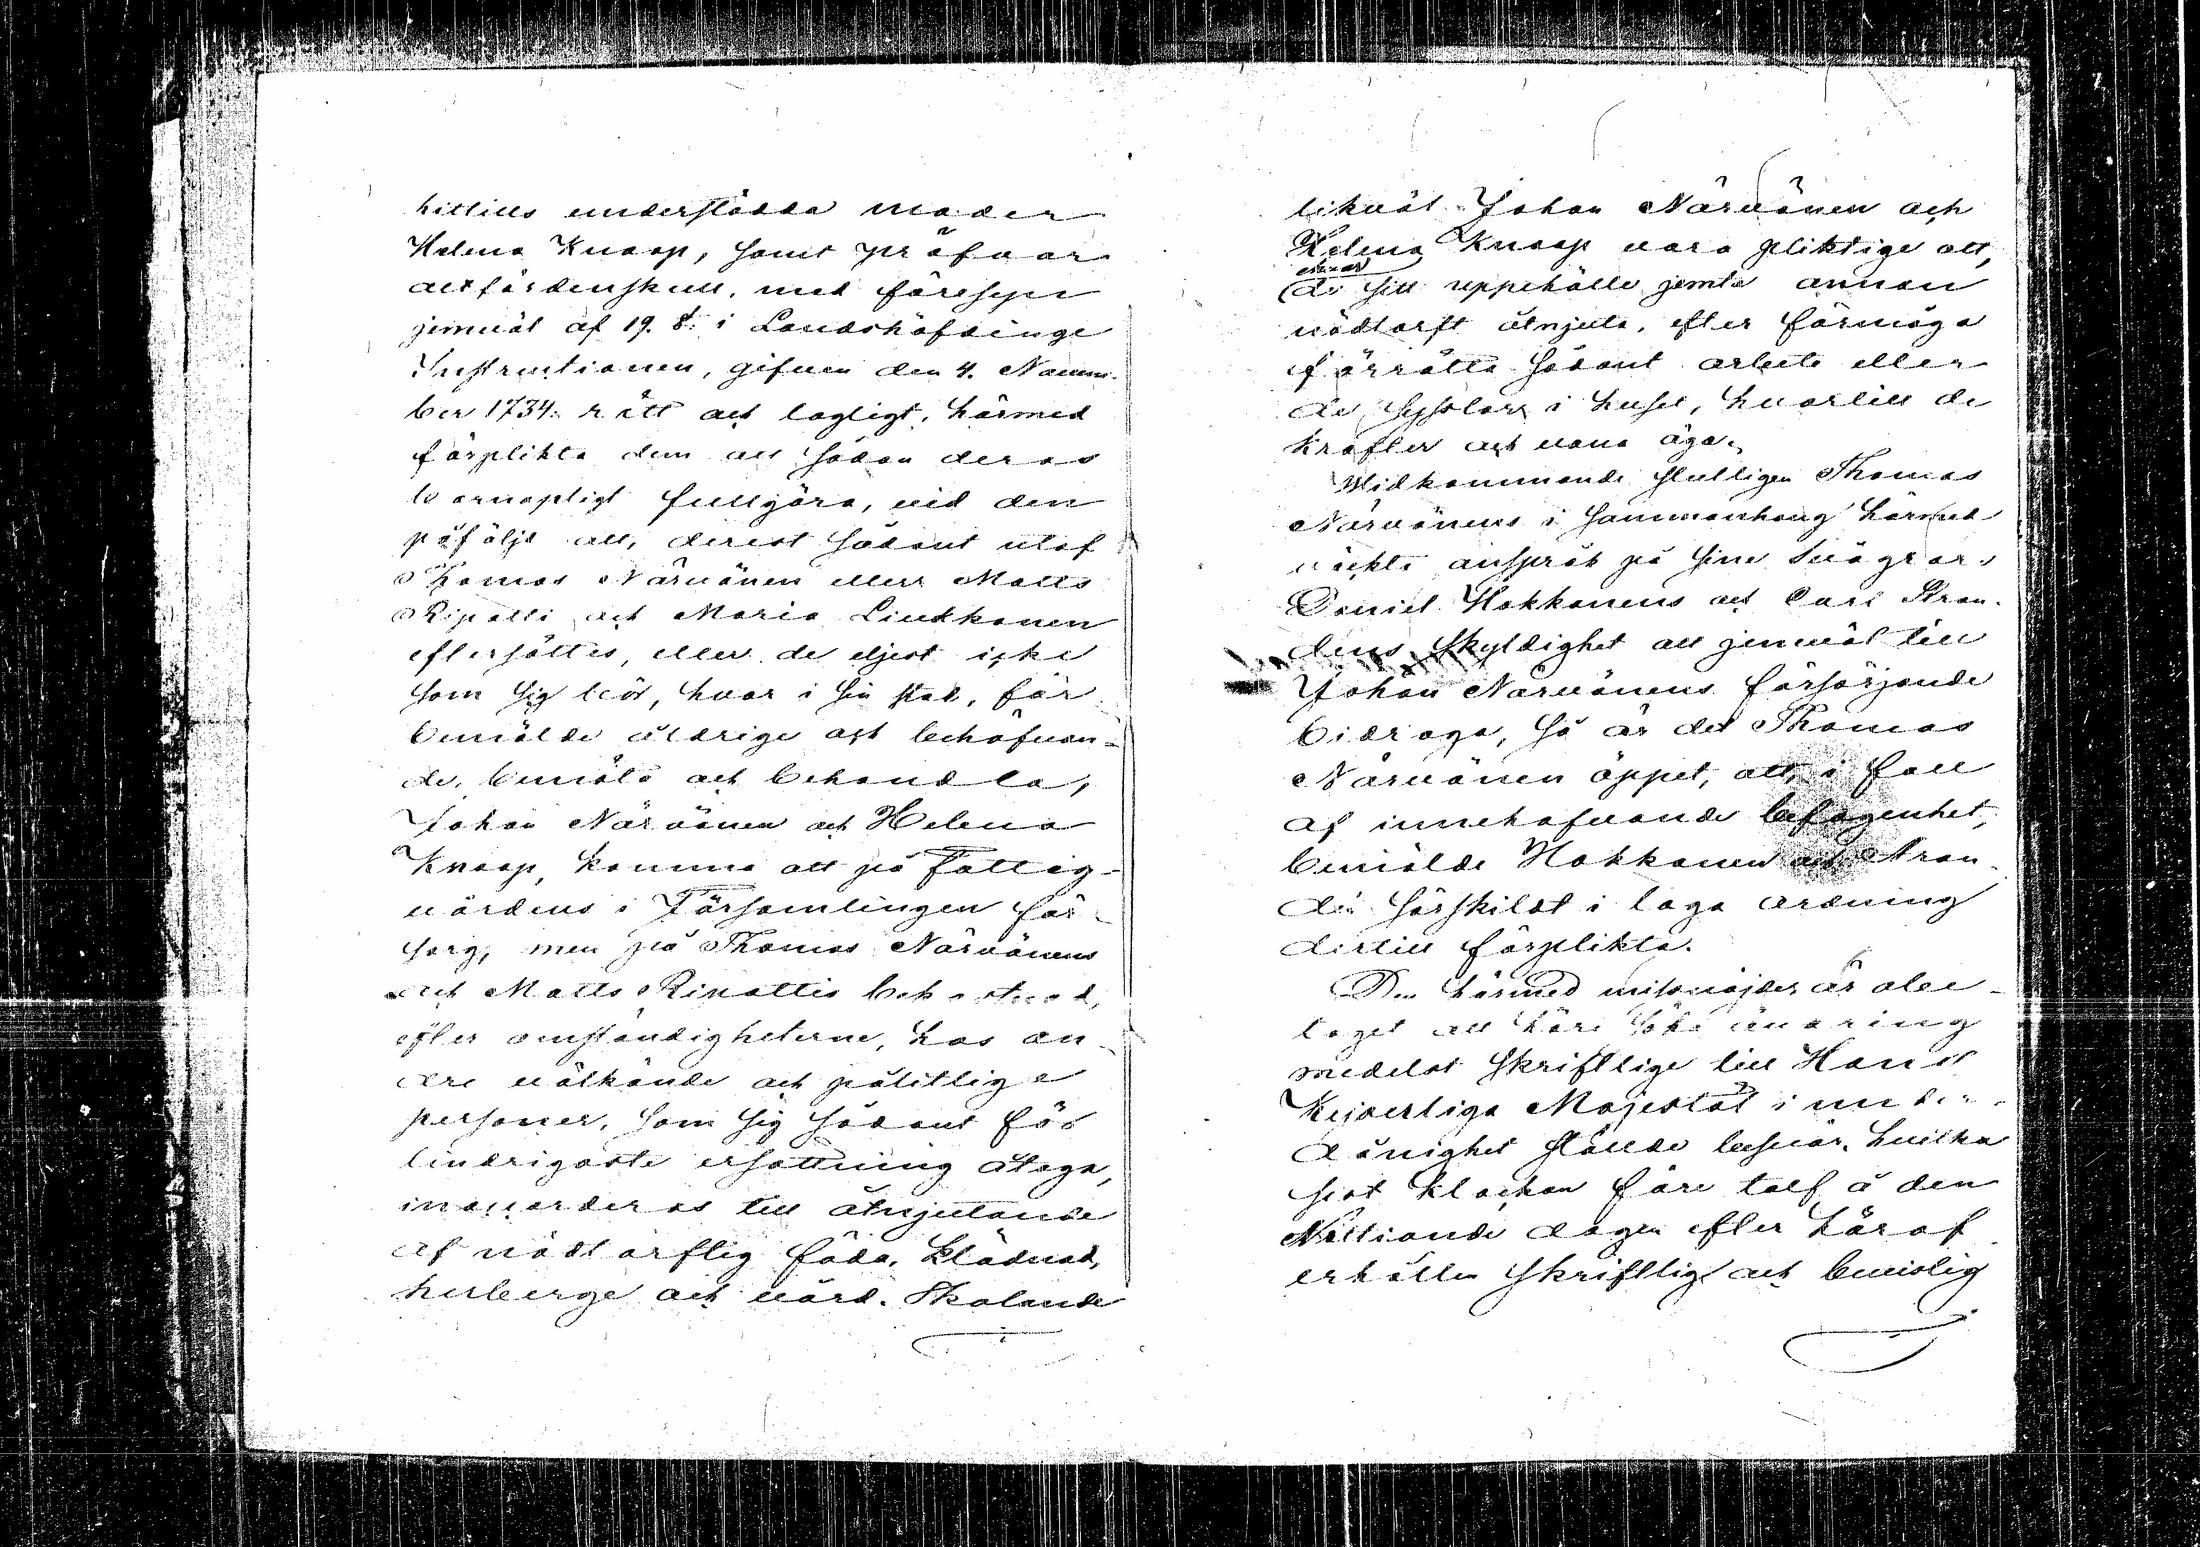 hittills understödda moder
Helena Knaap, samt pröfvar
altfördenskull, med föreseen
jemväl af 19. §. i Landshöfdinge
Instructionen, gifven den 4. Novem-
ber 1734. rätt och lagligt, härmed
förplikta dem att sådan deras
barnapligt fullgöra, vid den
påföljd att, derest sådant utaf
Thomas Närvänen eller Matts
Ripatti och Maria Liukkonen
eftersättes, eller de eljest icke
som sig bör, hvar i sin stad, för
bemälde åldrige och behöfvan-
de, bemöta och behandla,
Johan Närvänen och Helena
Knaap, komma att på fattig-
vårdens i Församlingen för-
sorg, men på Thomas Närvänens
och Matts Ripattis bekostnad,
efter omständigheterne, hos an-
dre välkände och pålitlige
personer, som sig sådant för
lindrigaste ersättning åtaga,
inaccorderas till åtnjutande
af nödtorftig föda, klädnad,
herberge och vård. Skolande
likväl Johan Närvänen och
Helena Knaap vara pliktige att,
de sitt uppehälle jemte annan
nödtorft åtnjuta, efter förmåga
förrätta sådant arbete eller
de sysslor i huset, hvartill de
krafter och vana äga.
Widkommande slutligen Thomas
Närvänens i sammanhang härmed
väckte anspråk på sine svågrars
Daniel Hakkanens och Carl Stran-
dens skyldighet att jemväl till
Johan Närvänens försörjande
bidraga, så är det Thomas
Närvänen öppet, att, i fall
af innehafvande befogenhet,
bemälde Hakkanen och Stran-
dén särskildt i laga ordning
dertill förplikta.
Den härmed missnöjder är obe-
taget att häri söka ändring
medelst skriftlige till Hans
Kejserliga Majestät i under-
dånighet stälde besvär, hvilka
sist klockan före tolf å den
Nittionde dagen efter häraf
erhållen skriftlig och bevislig